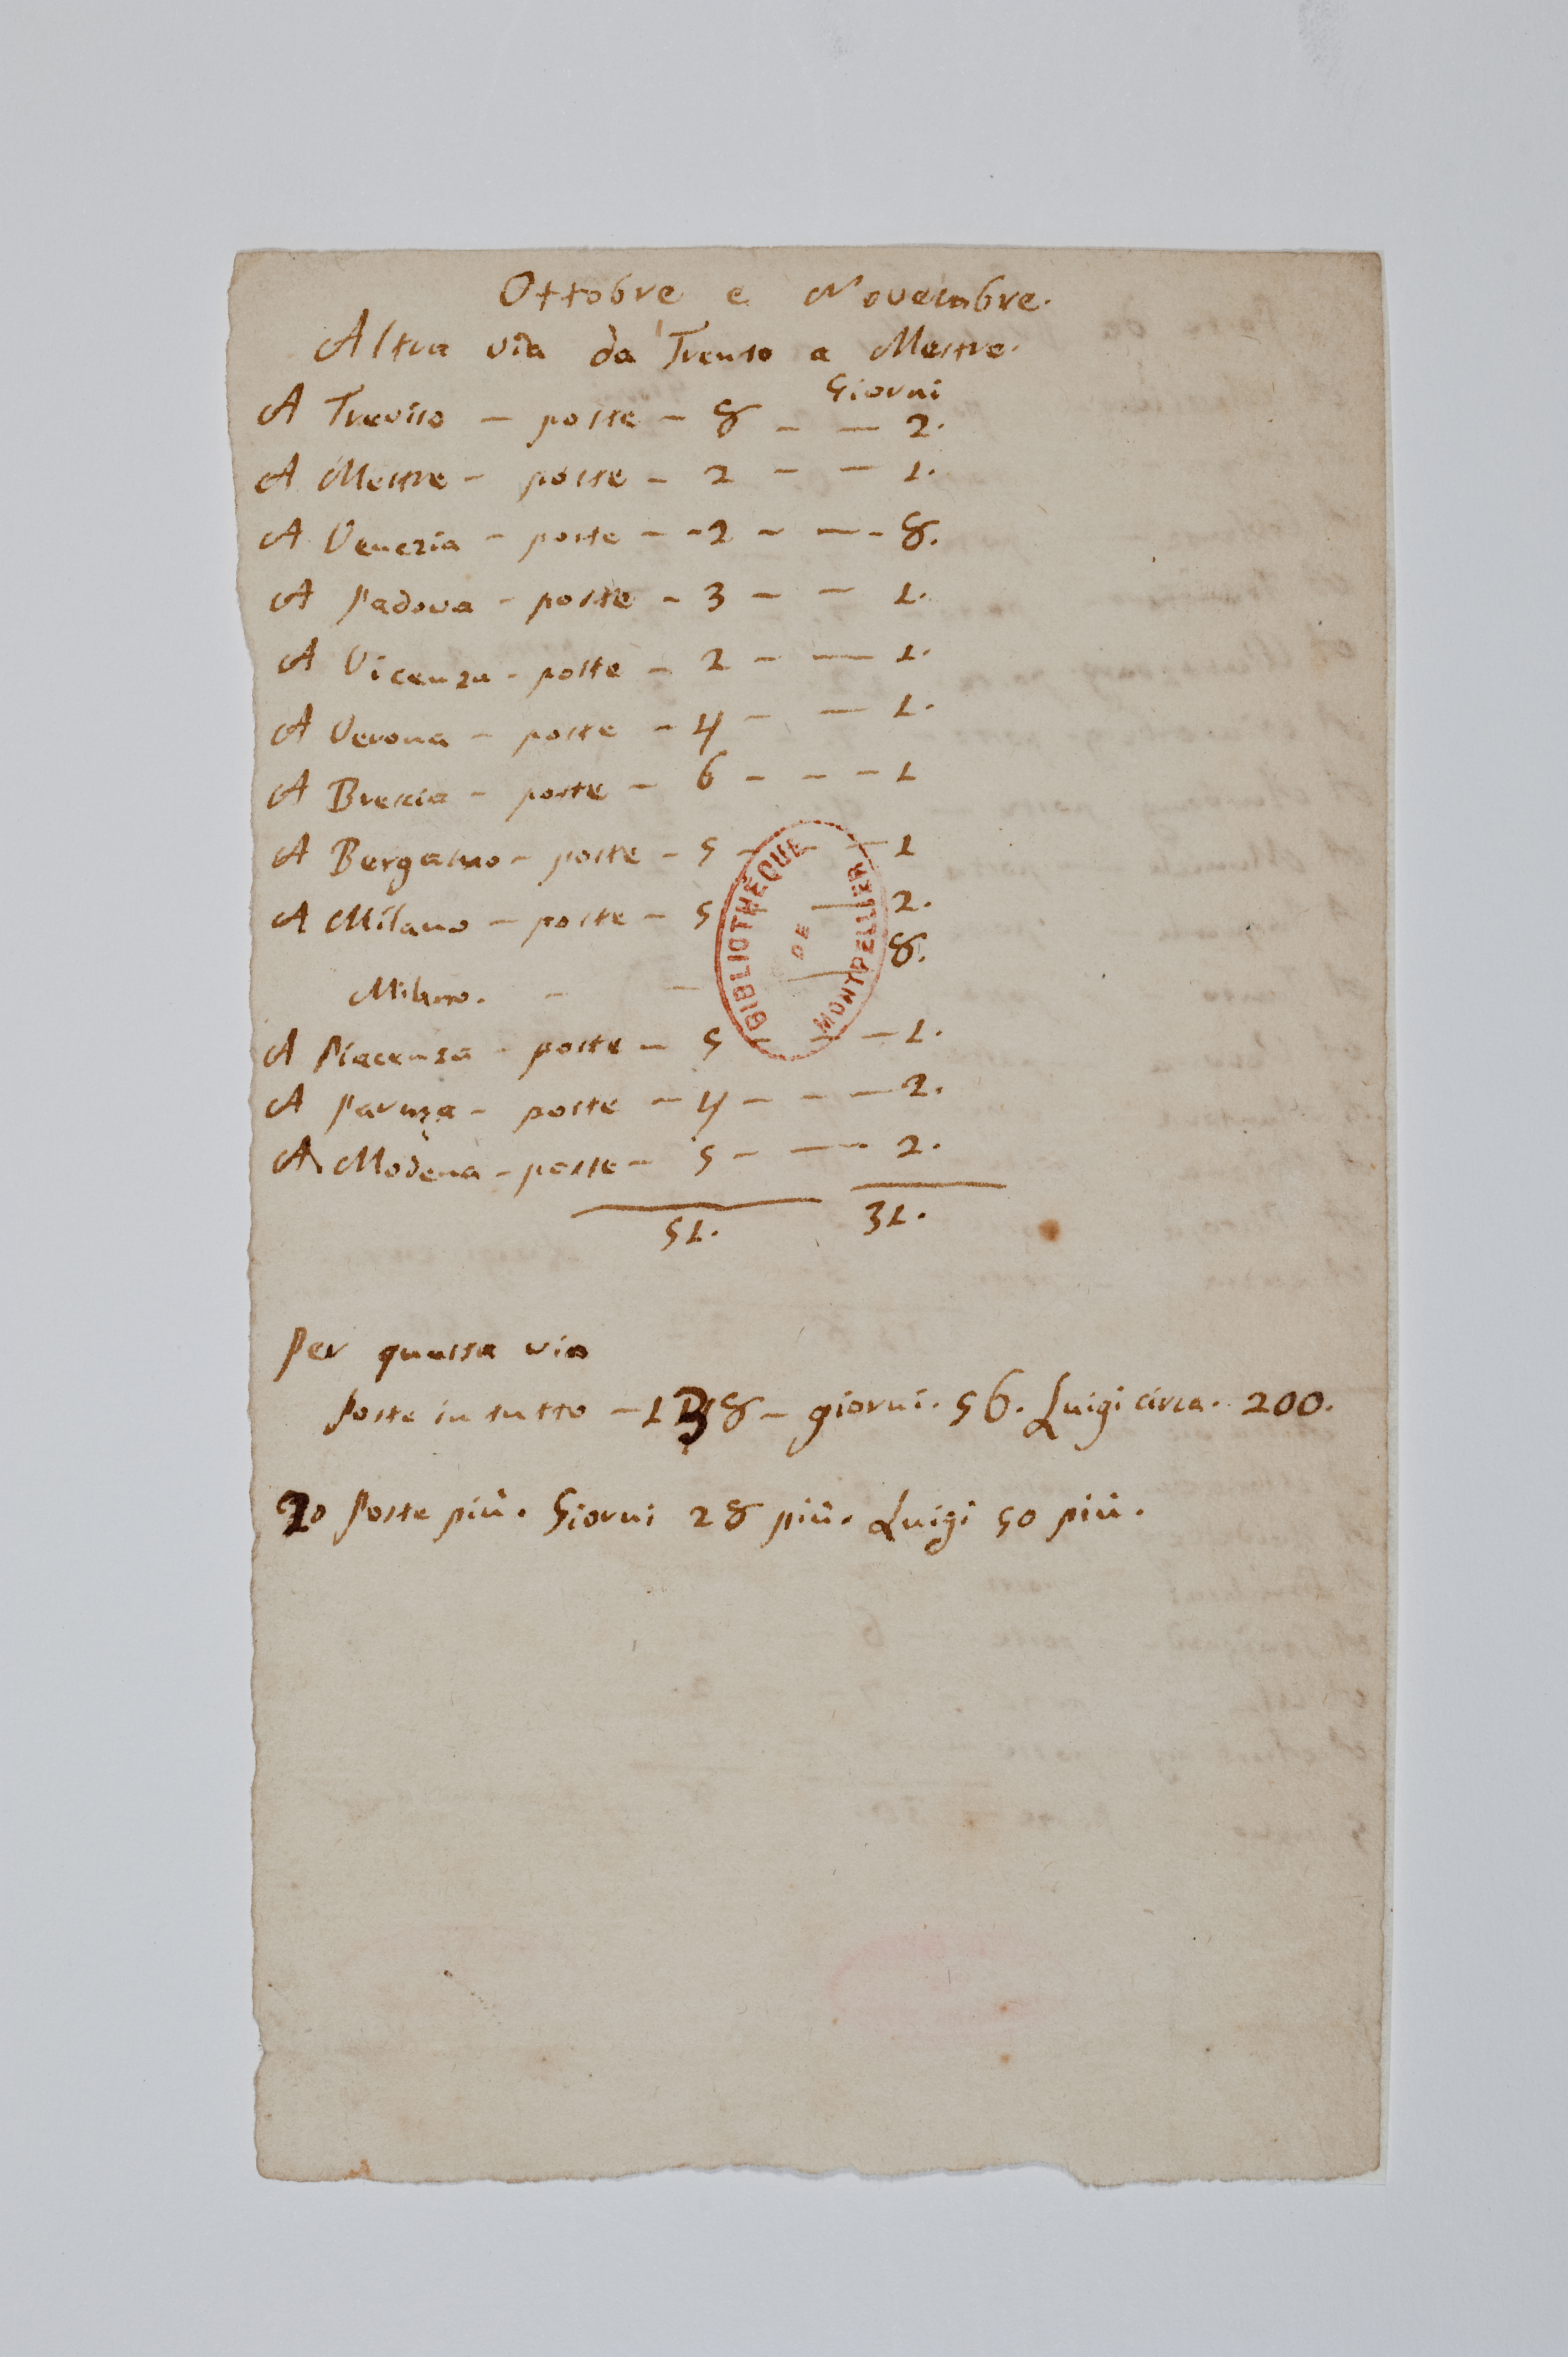 Ottobre e Novembre.
Altra via da Trento a Mestre.
Giorni
A Treviso - poste - 8 - - 2.
A Mestre - poste - 2 - - 1.
A Venezia - poste - - 2 - - - 8.
A Padova - poste - 3 - - 1.
A Vicenza - poste - 2 - - 1.
A Verona - poste - 4 - - 1.
A Brescia - poste - 6 - - - 1
A Bergamo - poste - 5 - - - 1
A Milano - poste - 5 - - 2.
Milano. - - - 8.
A Piacenza - poste - 5 - - - 1.
A Parma - poste - 4 - - - 2.
A Modena - poste - 5 - - - 2.
51. 31.
BIBLIOTHÈQUE DE MONTPELLIER
Per questa via
Poste in tutto - 138 - giorni. 56. Luigi circa. 200.
Poste più. Giorni 28 più. Luigi 50 più.